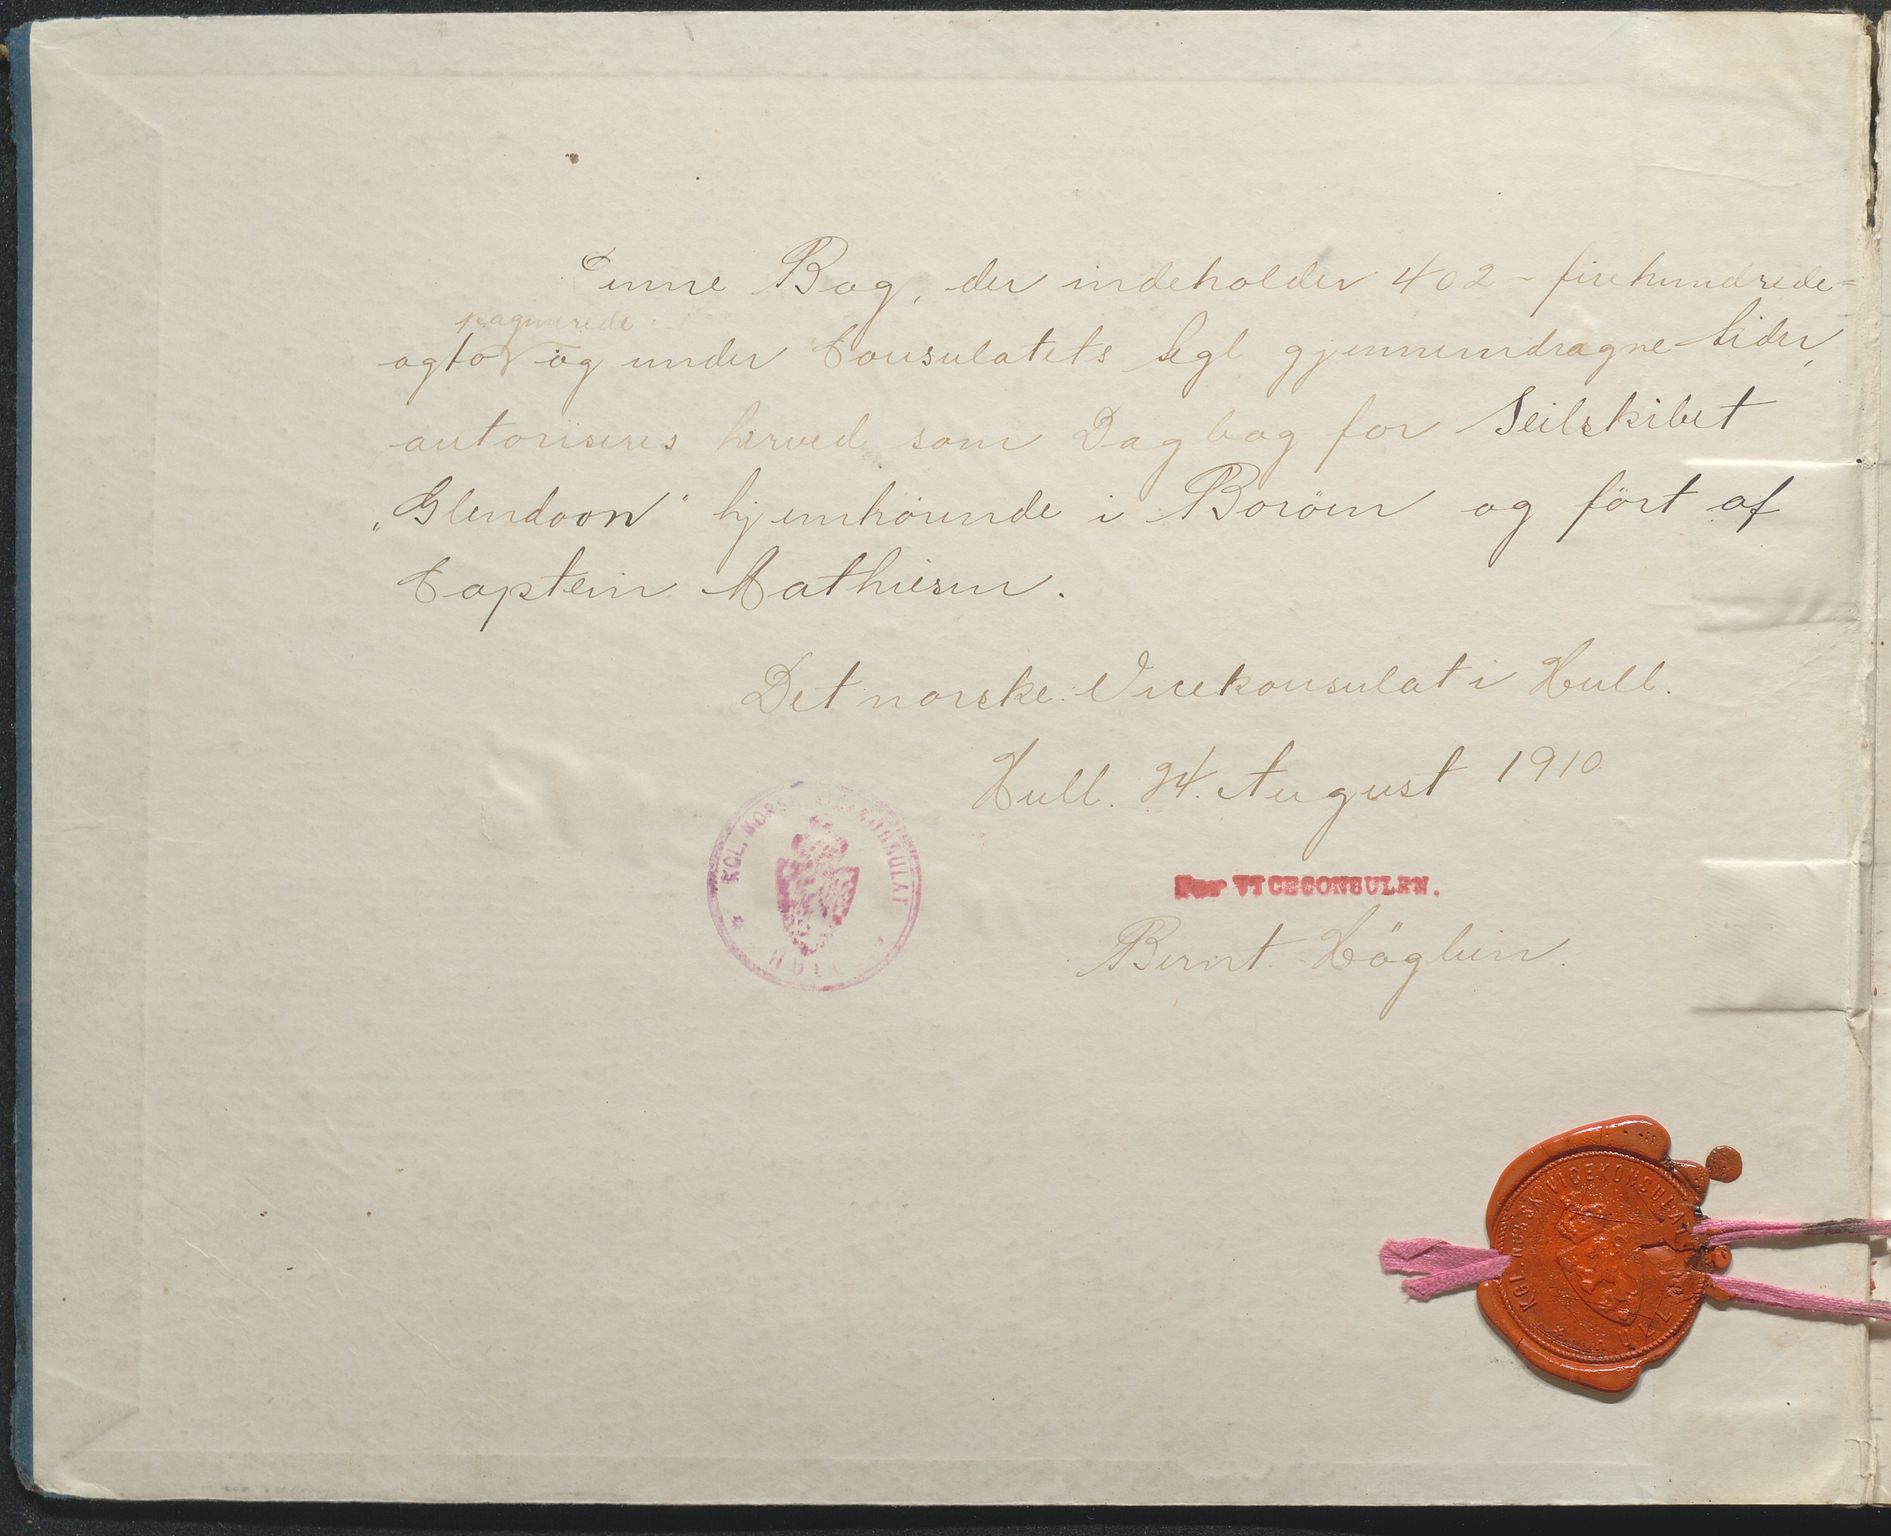 Denne Bog, der indeholder 402 - firehundrede=
paginerede
ogto og under Consulatets Segl gjennemdragne Sider,
autoriseres herved som Dagbog for Seilskibet
„Glendoon" hjemhørende i Borøen og fört af
Captein Mathiesen.
Det norske Vicekonsulat i Hull.
Hull. 24. August 1910
KGL. NORSK VICEKONSULAT
HULL
For VICECONSULEN.
Bernt Höglein.
KGL NORSK VICEKONSULAT
HULL